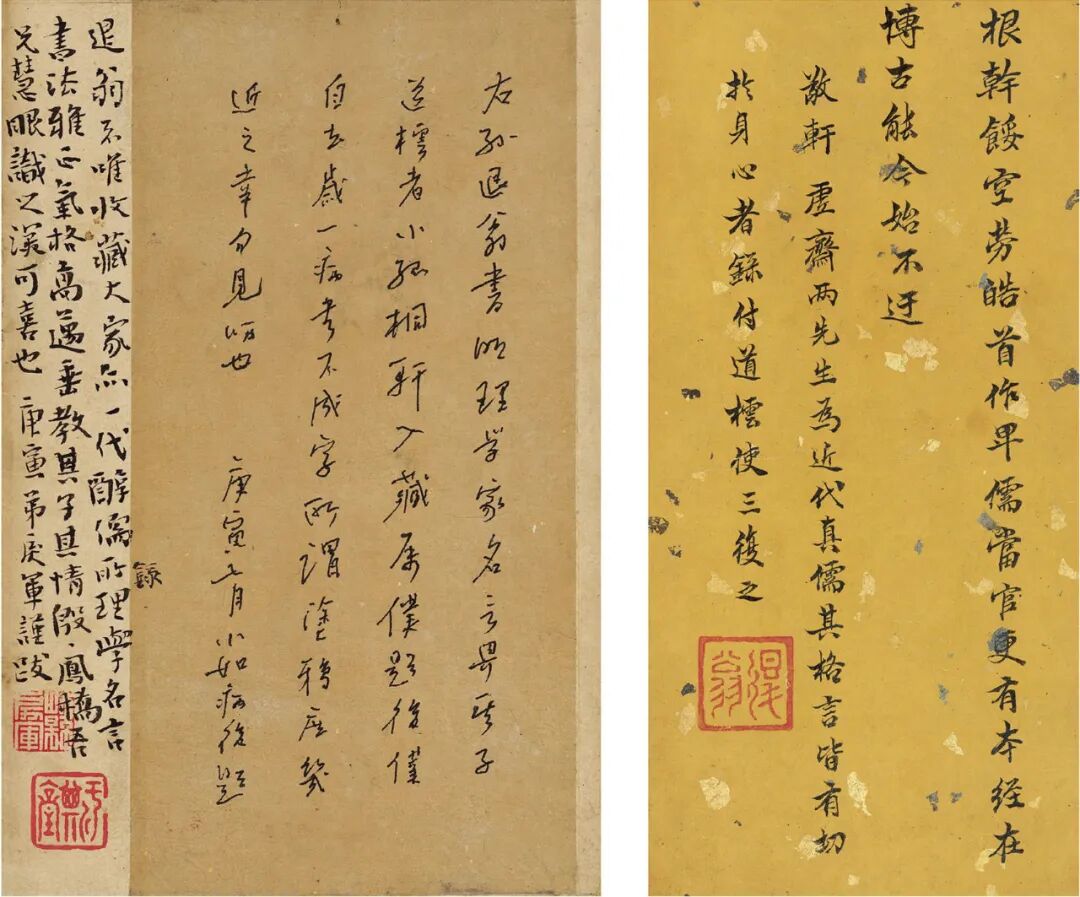 根幹餒空勞皓首作卑儒當官更有本經在
博古能今始不迂
敬軒虛齋兩先生為近代真儒其格言皆有切
於身心者錄付道樗使三復之
退翁
右孫退翁書明理学家名言畀其子
道樗者小疏桐軒入藏屬僕題後僕
自去歲一病書不成字所謂塗鴉庶幾
近之幸勿見哂也 庚寅七月小如病後題
退翁不唯收藏大家亦一代醇儒所理學名言
錄
書法雅正氣格高邁垂教其子其情殷鳳驕吾
兄慧眼識之可喜也 庚寅弟軍謹跋